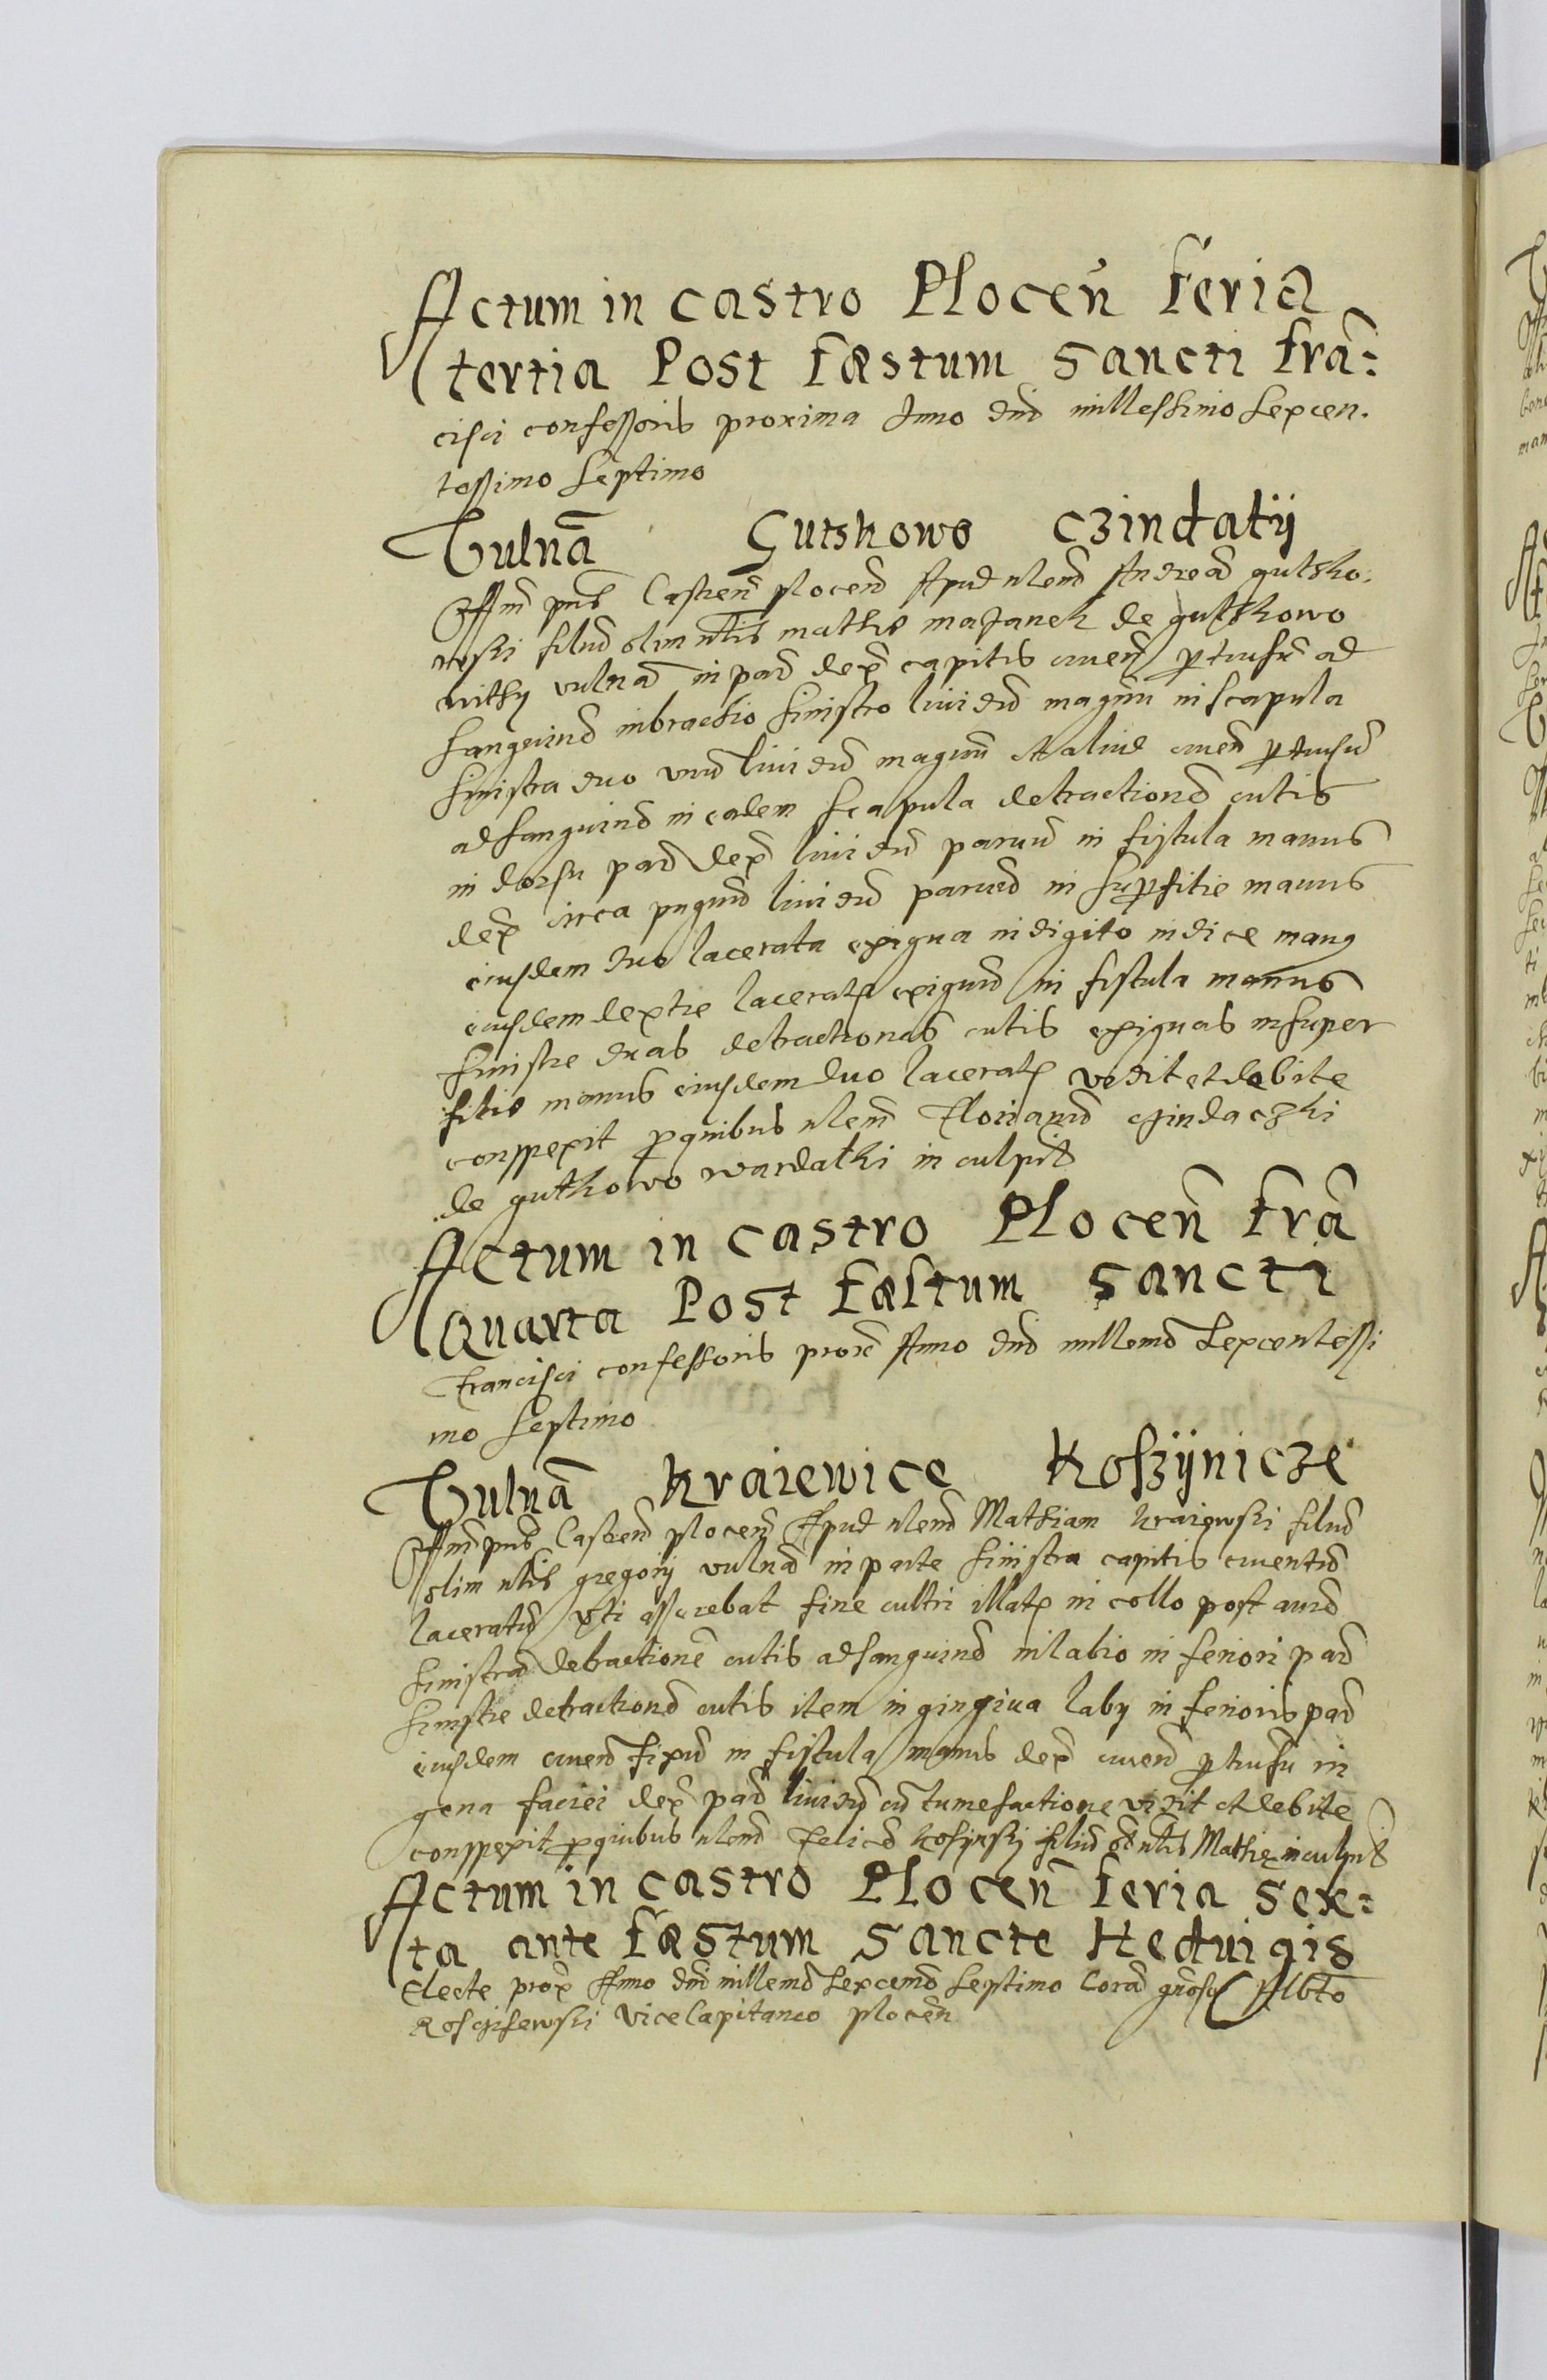 Actum in castro Plocen̄ feria
tertia Post fæstum Sancti fra͂:
cisci confessoris proxima Anno dnd millessimo sexcen.
tessimo septimo
Vulna͂ Gutskowo Czindatÿ
Offm pns Castren̄ plocen̄ Apud nlem Andrea͂ gutsko.
wski filiu͂ olim nlis mathie majanek de gutskowo
withy vulna͂ in par dex capitis cruen ptusu͂ ad
sanguine͂ in brachio sinistro liuidu͂ magnu͂ in scapula
sinistra duo vnu͂ liuidu͂ magnu͂ et aliud cruen ptusu͂
ad sanguine͂ in eadem scapula detractione͂ cutis
in dorsu par dex liuidu͂ paruu͂ in fistula manus
dex circa pugnu͂ liuidu͂ paruu͂ in supfitie manus
eiusdem duo lacerata exigua in digito indice man9
eiusdem dextre lacerat exiguu͂ in fistula manus
sinistre duas detractiones cutis exiguas in super
fitie manus eiusdem duo lacerat vidit et debite
conspexit pquibus nlem Florianu͂ czindaczki
de gutkowo wardatki inculpat
Actum in castro Plocen̄ fra͂
Quarta Post fæstum Sancti
Francisci confessoris prox Anno dnd millemo Sexcentessi
mo septimo
Vulna͂ Kraiewice Koszÿnicze
Offm pns Castren plocen̄ Apud nlem Mathiam kraiewski filiu͂
olim nlis gregorij vulna͂ in parte sinistra capitis cruentu͂
laceratu͂ vti asserebat fine cultri illat in collo post aure͂
sinistra͂ detractione͂ cutis ad sanguine͂ in labio inferiori par
sinistre detractione͂ cutis item in gingiua labij inferioris par
eiusdem cruen fixu͂ in fistula manus dex cruen ptusu͂ in
gena faciei dex par liuidu͂ cu͂ tumefactione vidit et debite
conspexit pquibus nlem Felice͂ kosinski filiu͂ ol nlis Mathie inculpat
Actum in castro Plocen̄ feria sex:
ta ante fæstum Sancte Heduigis
Electe prox Anno dnd millemo sexcemo septimo Cora͂ gnoso Albto
Kosczisewski Vicecapitaneo plocen̄